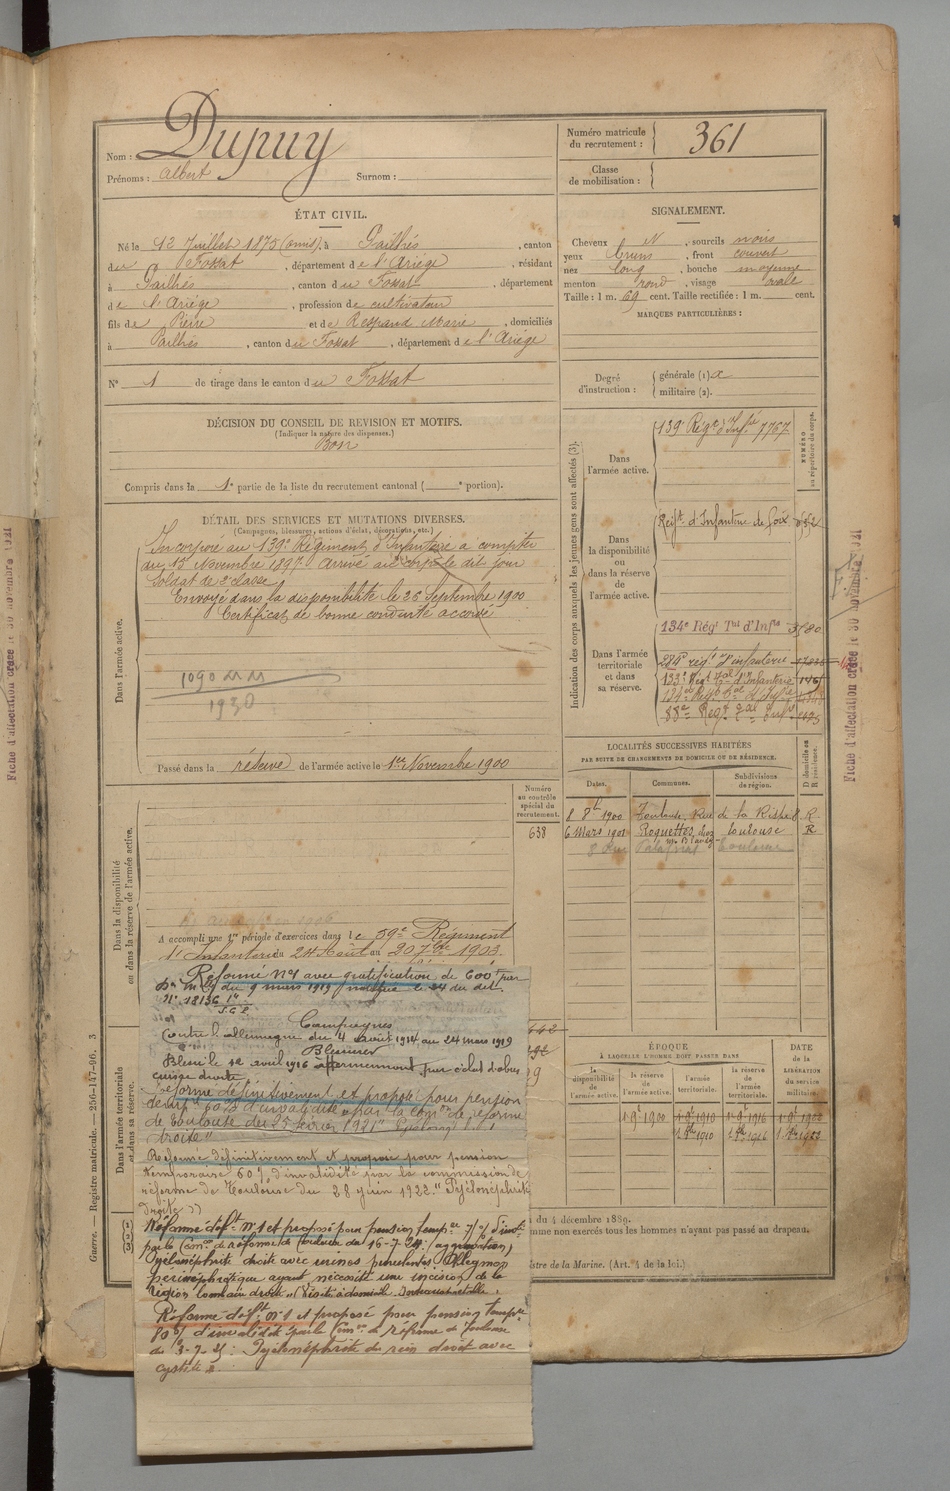 Nom : Dupuy
Prénoms : Albert Surnom :
Numéro matricule du recrutement : 361
Classe de mobilisation :
ÉTAT CIVIL.
Né le 12 Juillet 1875 (omis), à Pailhès, canton
du Fossat, département de l'Ariège, résidant
à Pailhès, canton du Fossat, département
de l'Ariège, profession de cultivateur
fils de Pierre et de Respaud Marie, domiciliés
à Pailhès, canton du Fossat, département de l'Ariège
N° 1 de tirage dans le canton du Fossat
SIGNALEMENT.
Cheveux N, sourcils noirs
yeux bruns, front couvert
nez long, bouche moyenne
menton rond, visage ovale
Taille : 1 m. 69 cent. Taille rectifiée : 1 m. cent.
MARQUES PARTICULIÈRES :
Degré d'instruction : générale (1) a
militaire (2).
DÉCISION DU CONSEIL DE REVISION ET MOTIFS.
(Indiquer la nature des dispenses.)
Bon
Compris dans la 1e partie de la liste du recrutement cantonal ( e portion).
DÉTAIL DES SERVICES ET MUTATIONS DIVERSES.
(Campagnes, blessures, actions d'éclat, décorations, etc.)
Dans l'armée active.
Incorporé au 139e Régiment d'Infanterie à compter
du 15 Novembre 1897. Arrivé au corps le dit jour
Soldat de 2e classe
Envoyé dans la disponibilité le 26 Septembre 1900
Certificat de bonne conduite accordé
1930
Passé dans la réserve de l'armée active le 1er Novembre 1900
Indication des corps auxquels les jeunes gens sont affectés (3).
NUMÉRO au répertoire du corps.
Dans l'armée active.
139e Régt d'Infie 7767
Dans la disponibilité ou dans la réserve de l'armée active.
Régt d'Infanterie de Foix
Dans l'armée territoriale et dans sa réserve.
134e Régt Tal d'Infie
284e régt d'infanterie
133e Régt Tal d'Infanterie
88e Régt Tal Infie
LOCALITÉS SUCCESSIVES HABITÉES
PAR SUITE DE CHANGEMENTS DE DOMICILE OU DE RÉSIDENCE.
Dates. Communes. Subdivisions de région. D domicile ou R résidence.
8 8bre 1900 Toulouse, Rue de la R
6 Mars 1901 Roquettes, chez Toulouse R
Toulouse
Numéro au contrôle spécial du recrutement.
638
Dans la disponibilité ou dans la réserve de l'armée active.
A accompli une 1re période d'exercices dans le 59e Régiment
d'Infanterie du 24 Août au 20 7bre 1903.
Dans l'armée territoriale et dans sa réserve.
Réformé n°1 avec gratification de 600f par
du 9 mars 1919 notifiée le 24 du dit.
N° 18136
Campagnes
Contre l'allemagne du 4 Août 1914 au 24 mars 1919
Blessures
Blessé le 12 avril 1916 par éclat d'obus
cuisse droite
Réformé définitivement et proposé pour pension
temp. 60% d'invalidité par la Comon de réforme
de Toulouse du 25 février 1921 "Pyélonéph
droite"
Réformé définitivement et proposé pour pension
temporaire 60% d'invalidité par la commission de
réforme de Toulouse du 28 juin 1922. "Pyélonéphrite
droite"
Réformé déft n°1 et proposé pour pension tempre % d'invté
par la Comon de réforme de Toulouse du 16-7-24 : (aggravation)
Pyélonéphrite droite avec urines purulentes. Phlegmon
périnéphrétique ayant nécessité une incision de la
région lombaire droite (Visite à domicile
Réformé déft n°1 et proposé pour pension tempre
80% d'invalidité par la Comon de réforme de Toulouse
du 3-7-25 : Pyélonéphrite du rein droit avec
cystite
ÉPOQUE
À LAQUELLE L'HOMME DOIT PASSER DANS
la disponibilité de l'armée active. la réserve de l'armée active. l'armée territoriale. la réserve de l'armée territoriale.
DATE de la LIBÉRATION du service militaire.
du 4 décembre 1889.
mme non exercés tous les hommes n'ayant pas passé au drapeau.
stre de la Marine. (Art. 4 de la loi.)
Guerre. — Registre matricule. — 256-147-96. 3
Fiche d'affectation créée le 30 novembre 1921
Fiche d'affectation créée le 30 novembre 1921